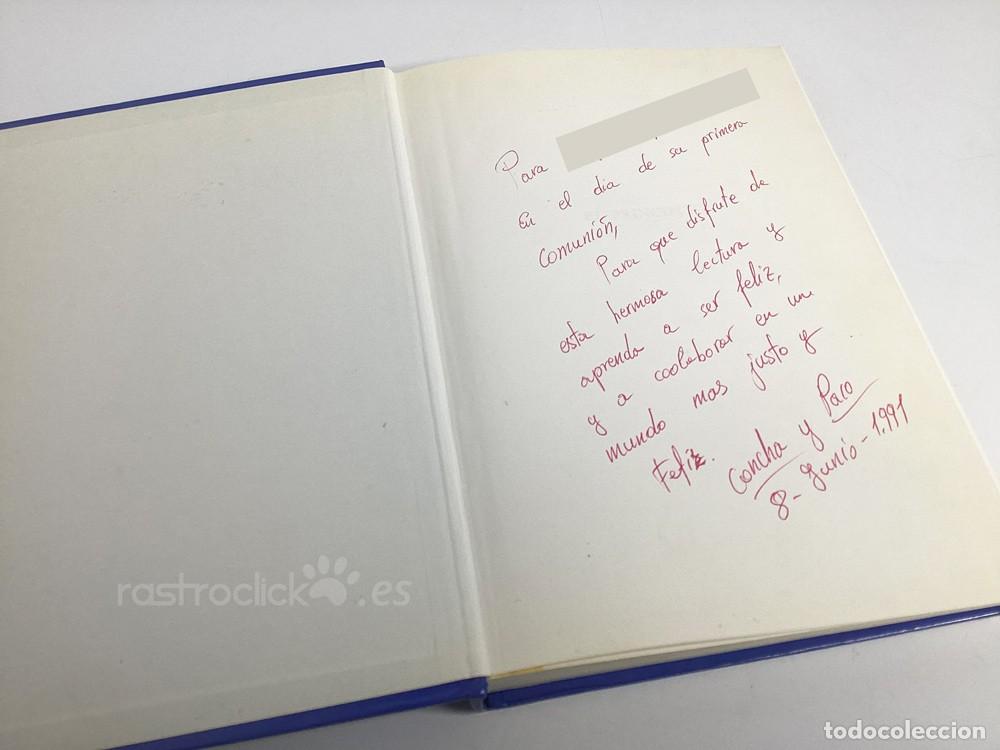 Para
En el dia de su primera
comunión,
Para que disfrute de
esta hermosa lectura y
aprenda a ser feliz,
y a coolaborar en un
mundo mas justo y
Feliz.
Concha y Paco
8-Junio-1.991
rastroclick.es
todocoleccion